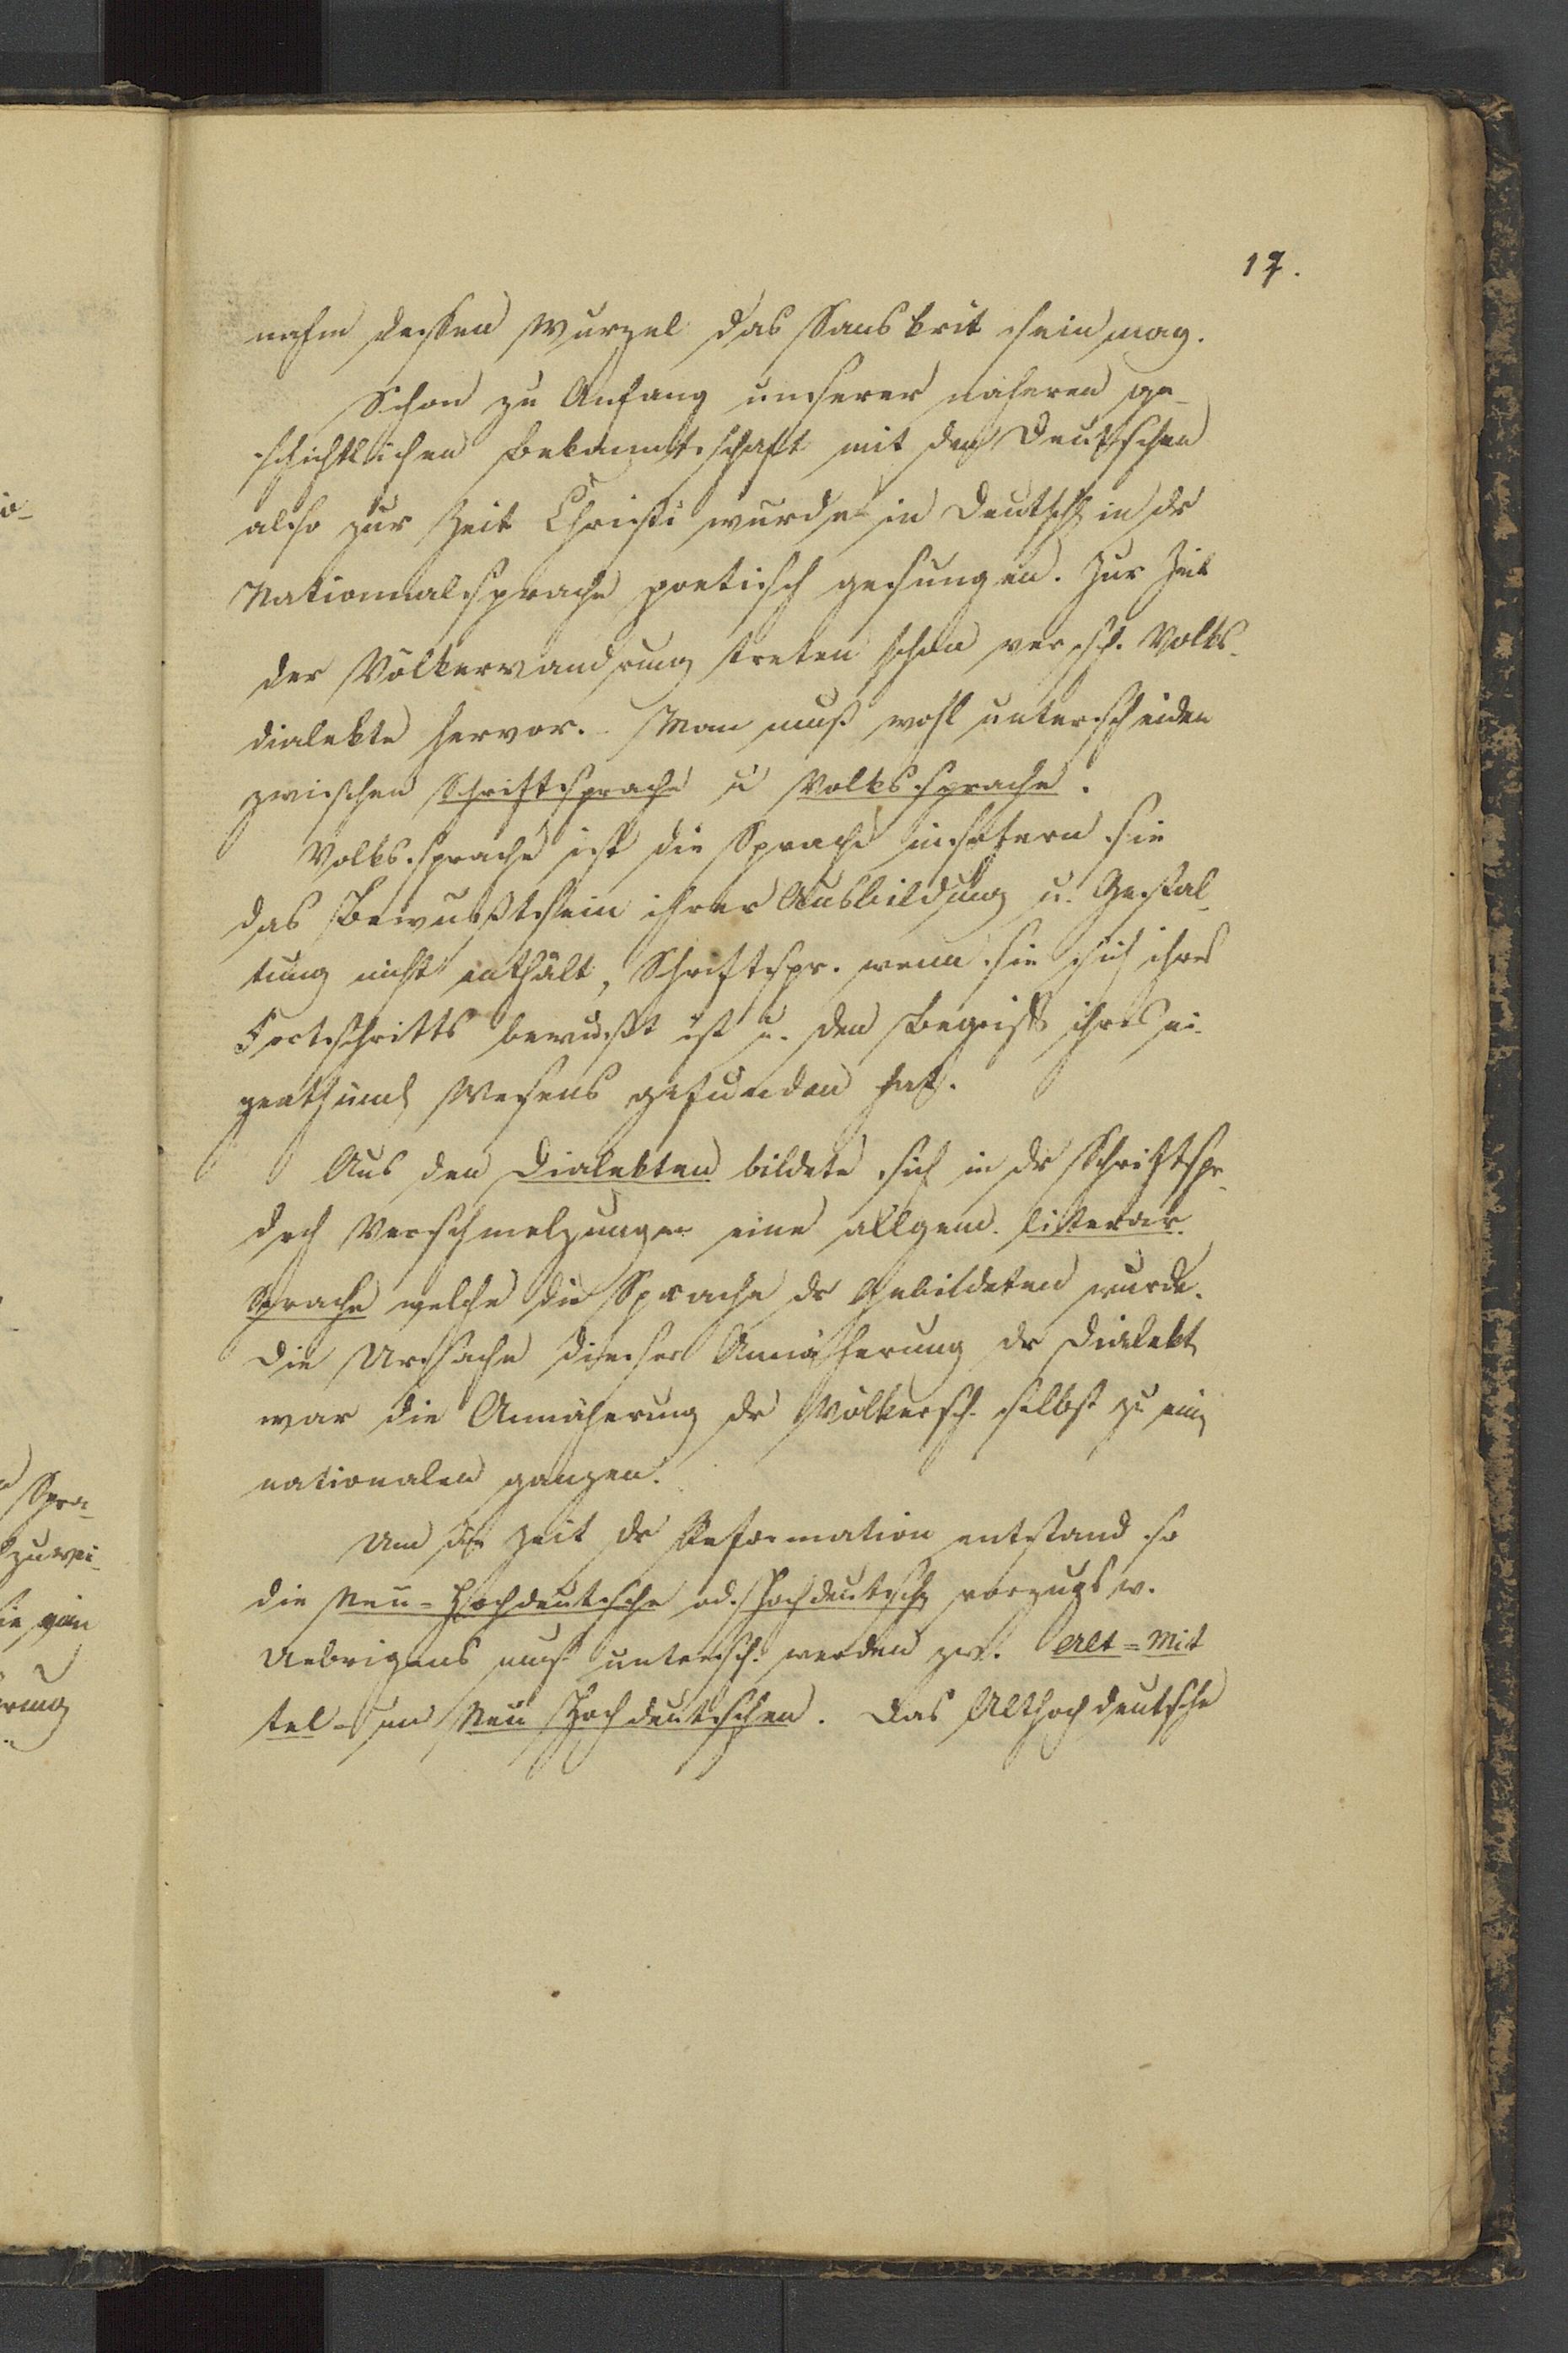 17.
nahm dessen Wurzel das Sanskrit sein mag.
Schon zu Anfang unserer näheren ge-
schichtlichen Bekanntschaft mit den Deutschen
also zur Zeit Christi wurde in Deutschl in dr
Nationalsprache poetisch gesungen. Zur Zeit
der Völkerwandrung treten schon versch. Volks-
dialekte hervor. Man muß wohl unterscheiden
zwischen Schriftsprache u Volkssprache.
Volkssprache ist die Sprache insofern sie
das Bewußtsein ihrer Ausbildung u. Gestal-
tung nicht enthält, Schriftspr. wenn sie sich ihres
Fortschritts bewußt ist u. den Begriff ihres ei-
genthüml Wesens gefunden hat.
Aus den Dialekten bildete sich in dr Schriftspr.
dch Verschmelzungen eine allgem. literar.
Sprache welche die Sprache dr Gebildeten wurde.
Die Ursache dieser Annäherung dr Dialekt
war die Annäherung dr Völkersch. selbst zu ein
nationalen ganzen.
Um die Zeit dr Reformation entstand so
die Neu-Hochdeutsche od. Hochdeutsch vorzugsw.
Uebrigens muß untersch. werden zw. Alt=Mit
tel- un Neu Hochdeutschen. Das Althochdeutsche